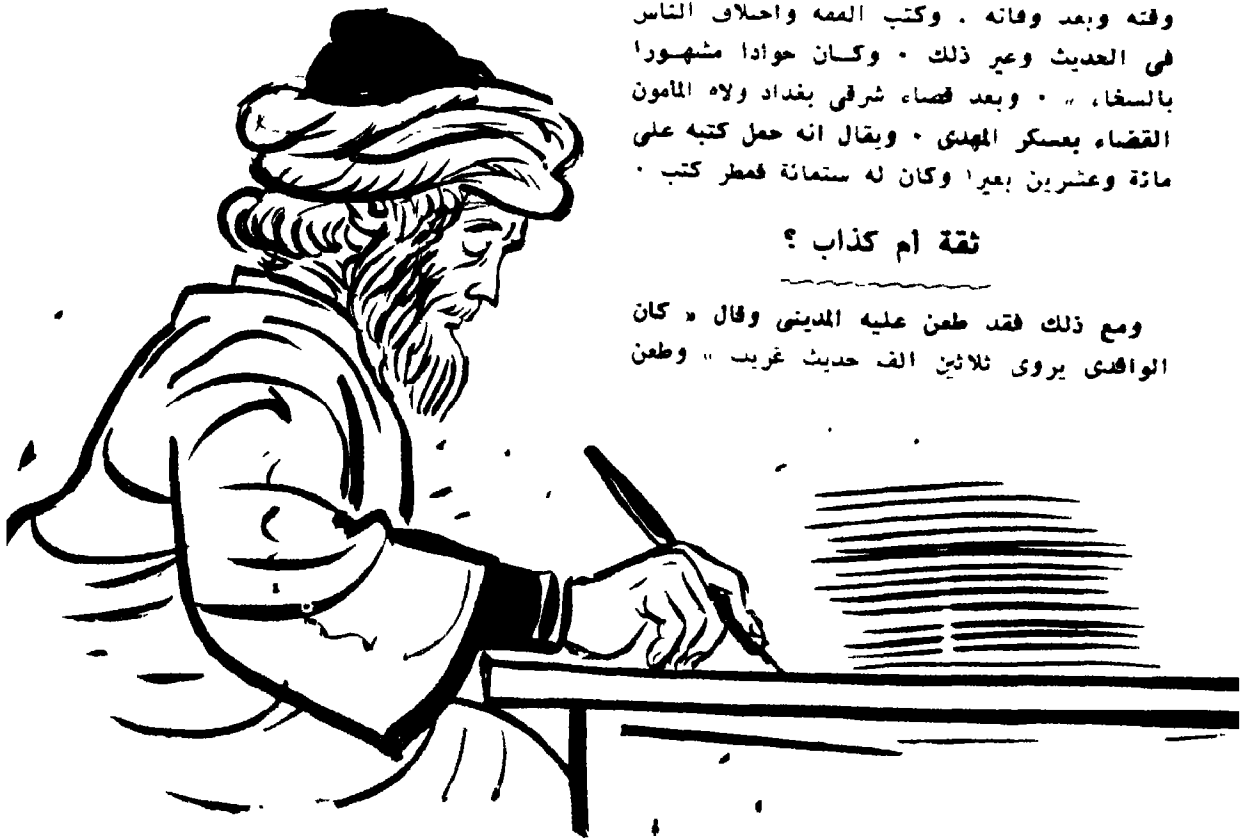 وقته وبعد وفاته . وكتب الفقه واختلاف الناس
في الحديث وغير ذلك . وكــان جوادا مشهــورا
بالسخاء » . وبعد قضاء شرقي بغداد ولاه المأمون
القضاء بعسكر المهدى . ويقال انه حمل كتبه على
مائة وعشرين بعيرا وكان له ستمائة قمطر كتب .
ثقة أم كذاب ؟
ومع ذلك فقد طعن عليه المدينى وقال « كان
الواقدى يروى ثلاثين الف حديث غريب » وطعن